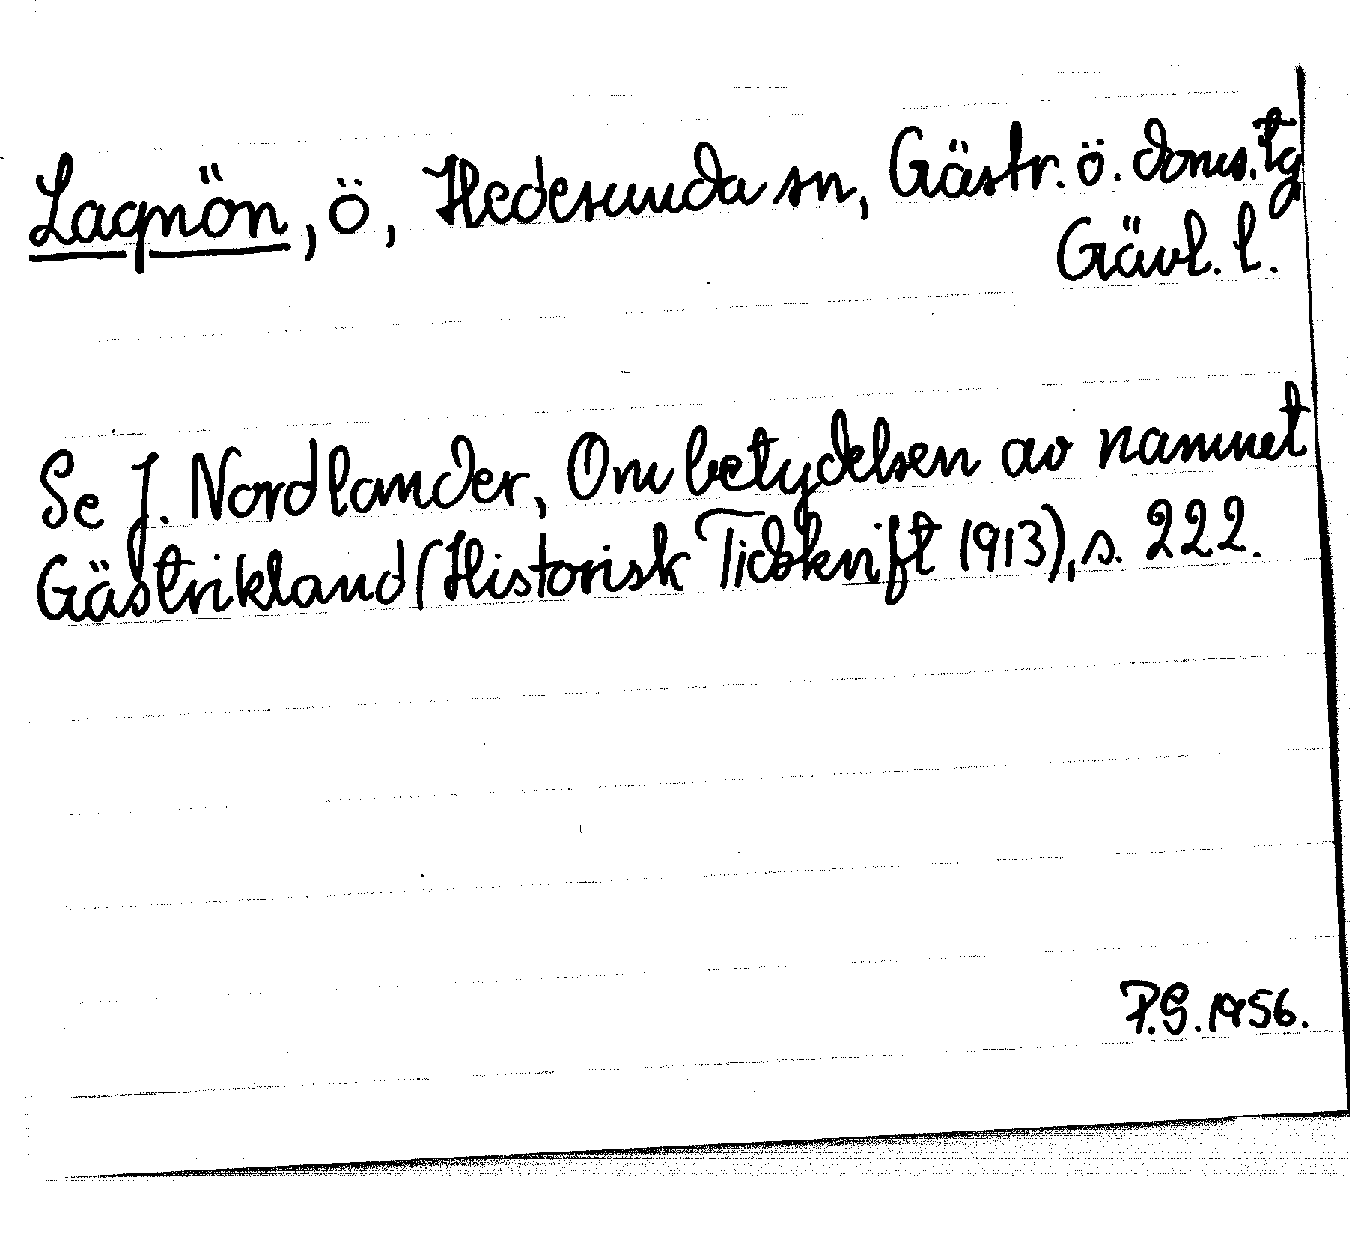 Lagnön, ö, Hedesunda sn, Gästr. ö. doms.tg
Gävl. l.
Se J. Nordlander, Om betydelsen av namnet
Gästrikland (Historisk Tidskrift 1913), s. 222.
P.G. 1956.